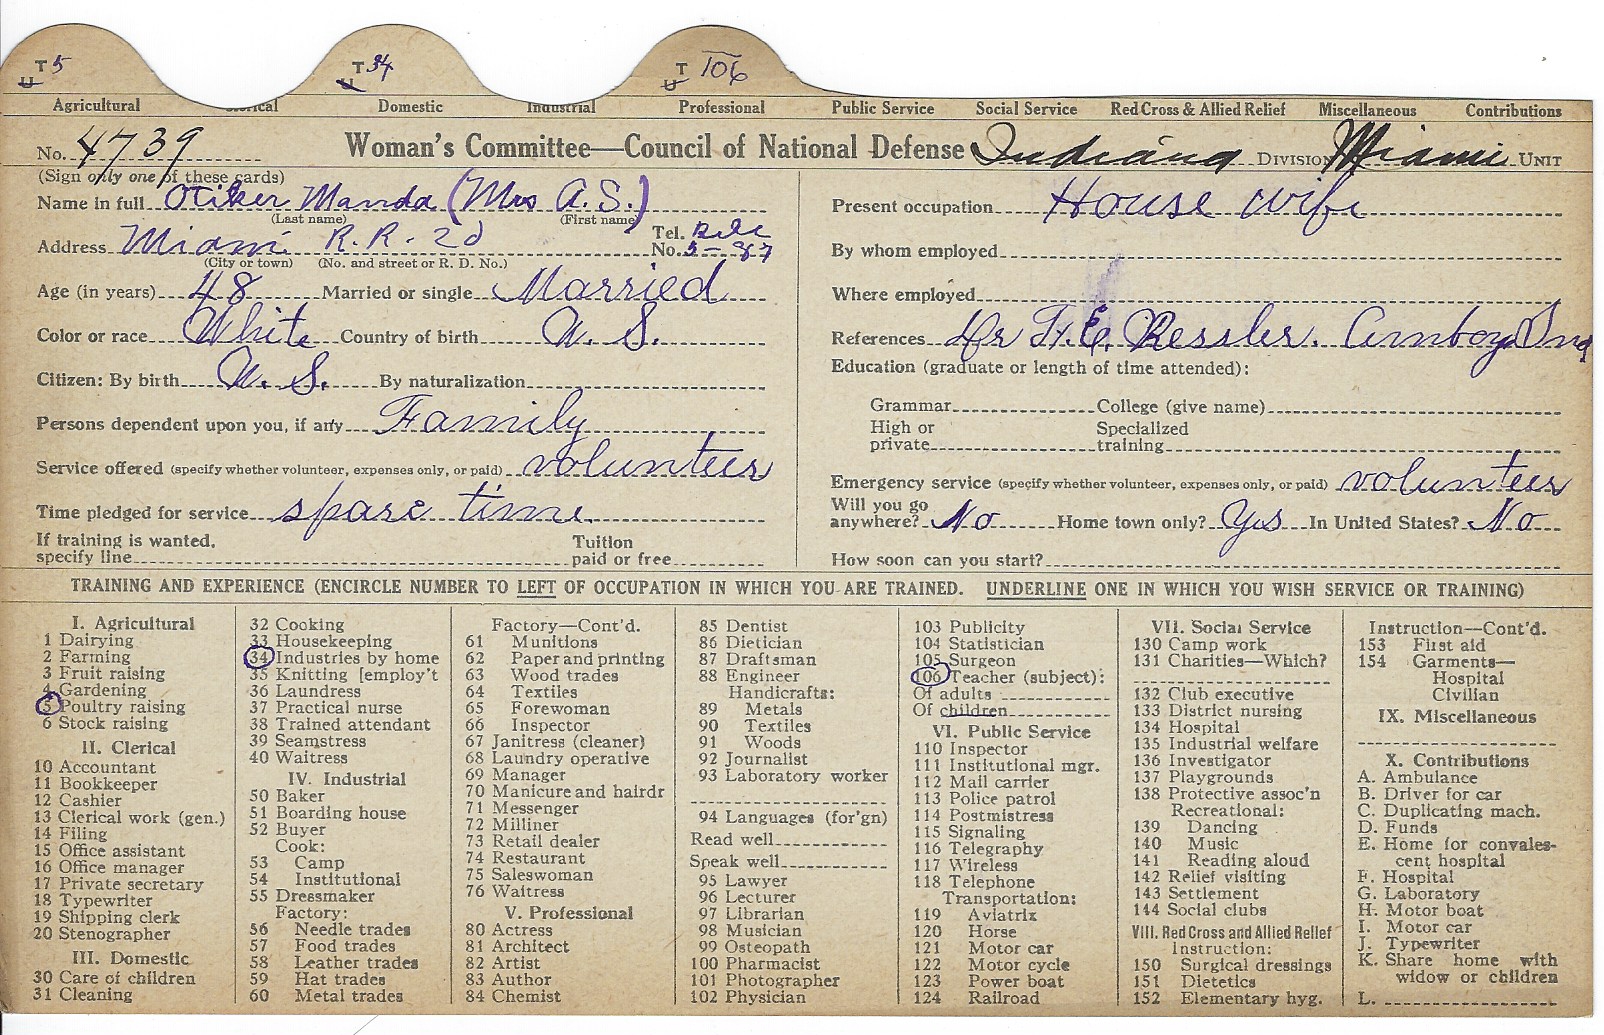 T 5 T 34 T 106
U U U
Agricultural Clerical Domestic Industrial Professional Public Service Social Service Red Cross & Allied Relief Miscellaneous Contributions
No. 4739 Woman's Committee—Council of National Defense Indiana DIVISION Miami UNIT
(Sign only one of these cards)
Name in full Otiker Manda (Mrs A.S.)
(Last name) (First name)
Address Miami R.R. 2d Tel. No. 5-87
(City or town) (No. and street or R. D. No.)
Age (in years) 48 Married or single Married
Color or race White Country of birth U. S.
Citizen: By birth U. S. By naturalization
Persons dependent upon you, if any Family
Service offered (specify whether volunteer, expenses only, or paid) volunteer
Time pledged for service spare time
If training is wanted, specify line Tuition paid or free
Present occupation House wife
By whom employed
Where employed
References Dr H. E. Ressler. Amboy Ind
Education (graduate or length of time attended):
Grammar College (give name)
High or private Specialized training
Emergency service (specify whether volunteer, expenses only, or paid) volunteer
Will you go anywhere? No Home town only? Yes In United States? No
How soon can you start?
TRAINING AND EXPERIENCE (ENCIRCLE NUMBER TO LEFT OF OCCUPATION IN WHICH YOU ARE TRAINED. UNDERLINE ONE IN WHICH YOU WISH SERVICE OR TRAINING)
I. Agricultural
1 Dairying
2 Farming
3 Fruit raising
4 Gardening
5 Poultry raising
6 Stock raising
II. Clerical
10 Accountant
11 Bookkeeper
12 Cashier
13 Clerical work (gen.)
14 Filing
15 Office assistant
16 Office manager
17 Private secretary
18 Typewriter
19 Shipping clerk
20 Stenographer
III. Domestic
30 Care of children
31 Cleaning
32 Cooking
33 Housekeeping
34 Industries by home
35 Knitting [employ't
36 Laundress
37 Practical nurse
38 Trained attendant
39 Seamstress
40 Waitress
IV. Industrial
50 Baker
51 Boarding house
52 Buyer
Cook:
53 Camp
54 Institutional
55 Dressmaker
Factory:
56 Needle trades
57 Food trades
58 Leather trades
59 Hat trades
60 Metal trades
Factory—Cont'd.
61 Munitions
62 Paper and printing
63 Wood trades
64 Textiles
65 Forewoman
66 Inspector
67 Janitress (cleaner)
68 Laundry operative
69 Manager
70 Manicure and hairdr
71 Messenger
72 Milliner
73 Retail dealer
74 Restaurant
75 Saleswoman
76 Waitress
V. Professional
80 Actress
81 Architect
82 Artist
83 Author
84 Chemist
85 Dentist
86 Dietician
87 Draftsman
88 Engineer
Handicrafts:
89 Metals
90 Textiles
91 Woods
92 Journalist
93 Laboratory worker
94 Languages (for'gn)
Read well
Speak well
95 Lawyer
96 Lecturer
97 Librarian
98 Musician
99 Osteopath
100 Pharmacist
101 Photographer
102 Physician
103 Publicity
104 Statistician
105 Surgeon
106 Teacher (subject):
Of adults
Of children
VI. Public Service
110 Inspector
111 Institutional mgr.
112 Mail carrier
113 Police patrol
114 Postmistress
115 Signaling
116 Telegraphy
117 Wireless
118 Telephone
Transportation:
119 Aviatrix
120 Horse
121 Motor car
122 Motor cycle
123 Power boat
124 Railroad
VII. Social Service
130 Camp work
131 Charities—Which?
132 Club executive
133 District nursing
134 Hospital
135 Industrial welfare
136 Investigator
137 Playgrounds
138 Protective assoc'n
Recreational:
139 Dancing
140 Music
141 Reading aloud
142 Relief visiting
143 Settlement
144 Social clubs
VIII. Red Cross and Allied Relief
Instruction:
150 Surgical dressings
151 Dietetics
152 Elementary hyg.
Instruction—Cont'd.
153 First aid
154 Garments—
Hospital
Civilian
IX. Miscellaneous
X. Contributions
A. Ambulance
B. Driver for car
C. Duplicating mach.
D. Funds
E. Home for convales-
cent hospital
F. Hospital
G. Laboratory
H. Motor boat
I. Motor car
J. Typewriter
K. Share home with
widow or children
L.